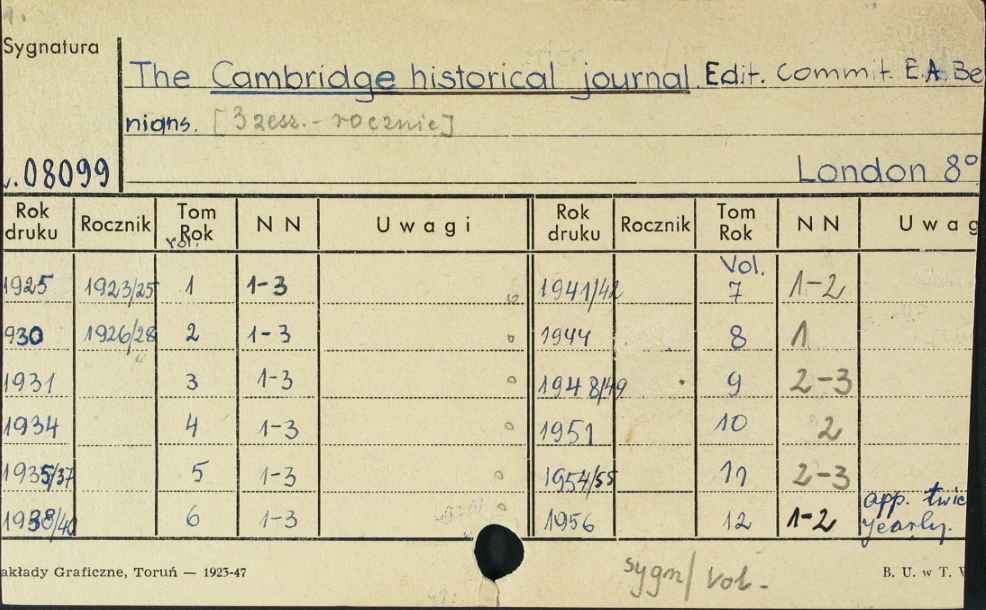 1.
Sygnatura
The Cambridge historical journal. Edit. Commit. E.A. Be
nians. [3 zesz. - rocznie]
.08099
London 8°
Rok druku Rocznik Tom Rok NN Uwagi Rok druku Rocznik Tom Rok NN Uwag
vol. Vol.
1925 1923/25 1 1-3 1941/42 7 1-2
930 1926/28 2 1-3 1944 8 1
1931 3 1-3 1948/49 9 2-3
1934 4 1-3 1951 10 2
1935/37 5 1-3 1954/55 11 2-3
1938/40 6 1-3 1956 12 1-2 app. twic
yearly.
akłady Graficzne, Toruń — 1923-47 sygn/ vol. B. U. w T.